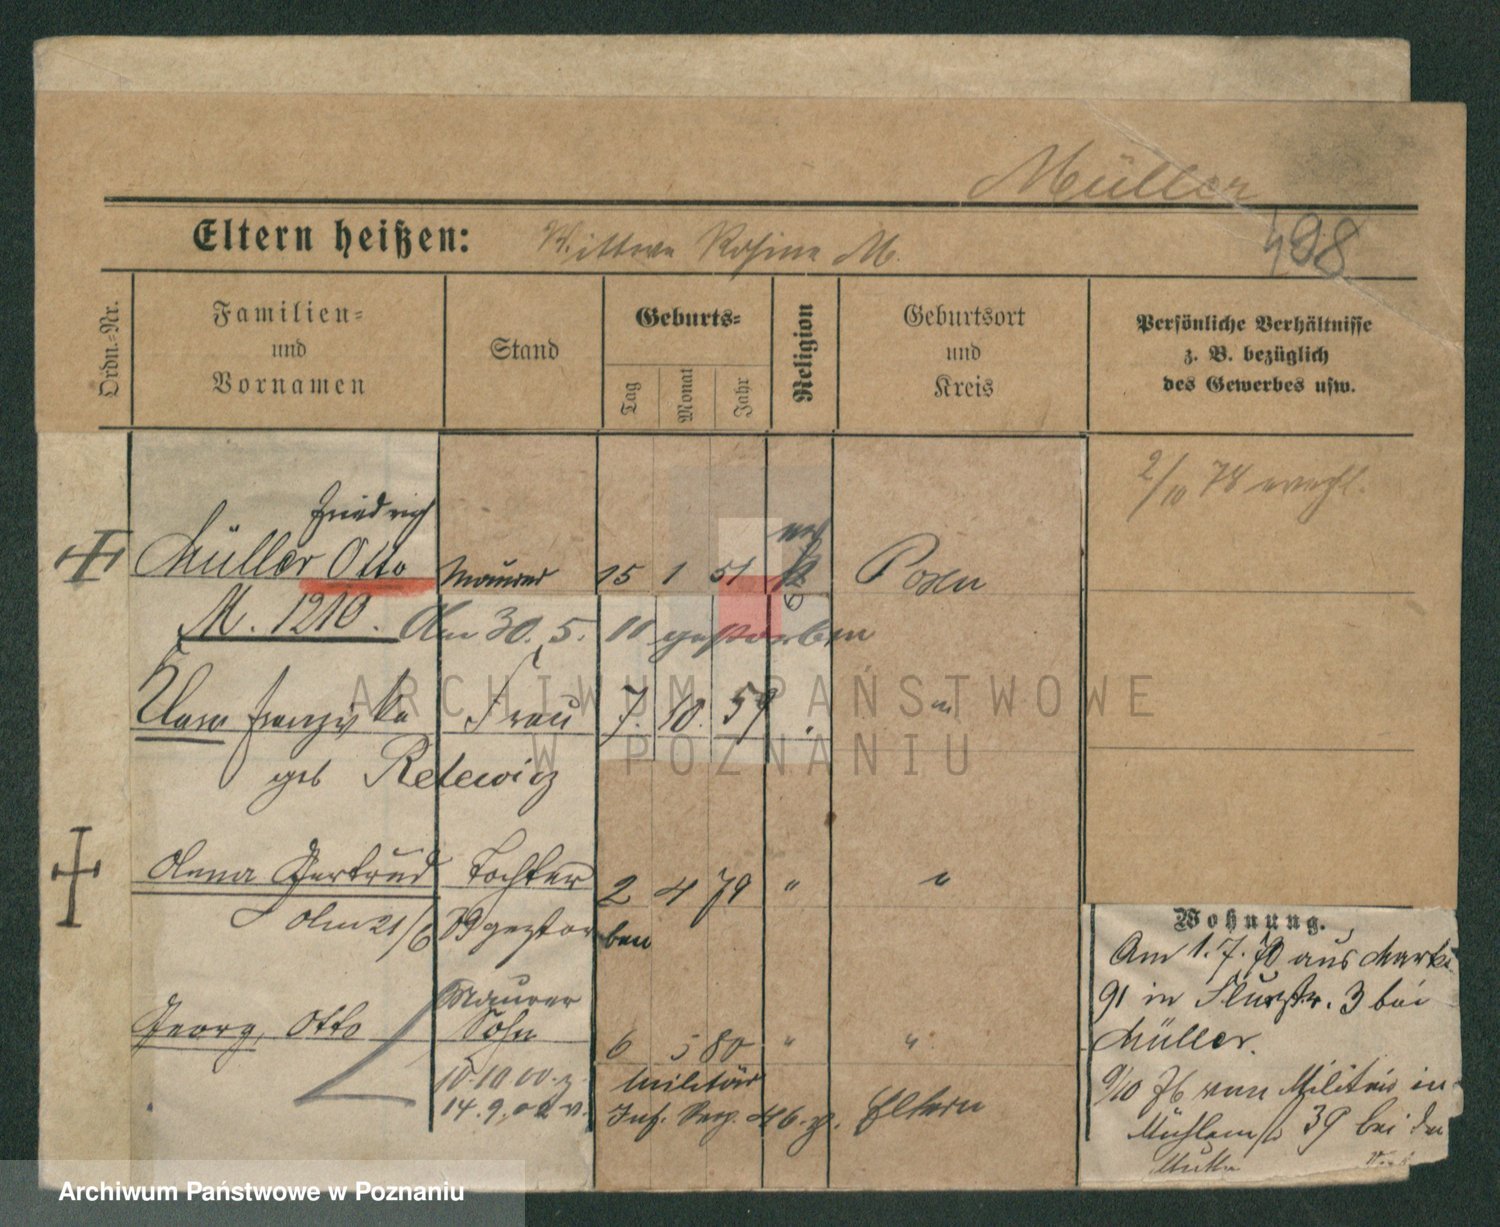 Müller
498
Eltern heißen: Wittwe Rosine M.
Ordn.-Nr.
Familien=
und
Vornamen
Stand
Geburts=
Tag
Monat
Jahr
Religion
Geburtsort
und
Kreis
Persönliche Verhältnisse
z. B. bezüglich
des Gewerbes usw.
2/10 78 verehl.
Friedrich
Müller Otto Maurer 15 1 51 Posen
M. 1210. Am 30. 5. 11 gestorben
Clara Franziska Frau 7. 10. 59 "
geb Relewicz
Anna Gertrud Tochter 2 4 79 " "
Am 21/6 79 gestorben
Maurer
Georg, Otto Sohn 6 5 80 " "
10.10 00. z. Militär
14. 9. 02 v. Inf. Reg. 46. z. Eltern
Wohnung.
Am 1. 7. 70 aus Markt
91 in Flurstr. 3 bei
Müller.
9/10 76 vom Militär in
Mühlenstr 39 bei der
Mutter
ARCHIWUM PAŃSTWOWE
W POZNANIU
Archiwum Państwowe w Poznaniu